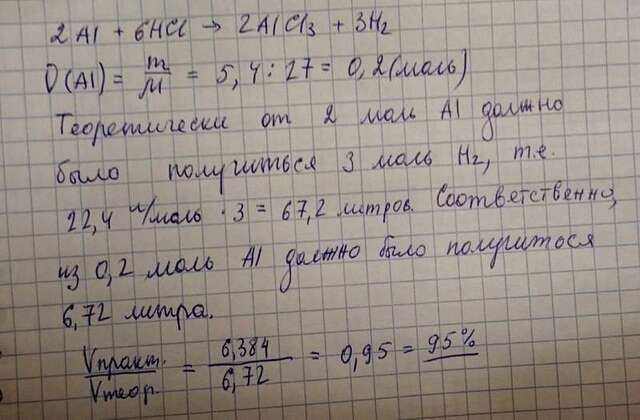 2Al + 6HCl → 2AlCl3 + 3H2
ν(Al) = m/M = 5,4 : 27 = 0,2 (моль)
Теоретически от 2 моль Al должно
было получиться 3 моль H2, т.е.
22,4 л/моль · 3 = 67,2 литров. Соответственно,
из 0,2 моль Al должно было получиться
6,72 литра.
Vпракт./Vтеор. = 6,384/6,72 = 0,95 = 95%